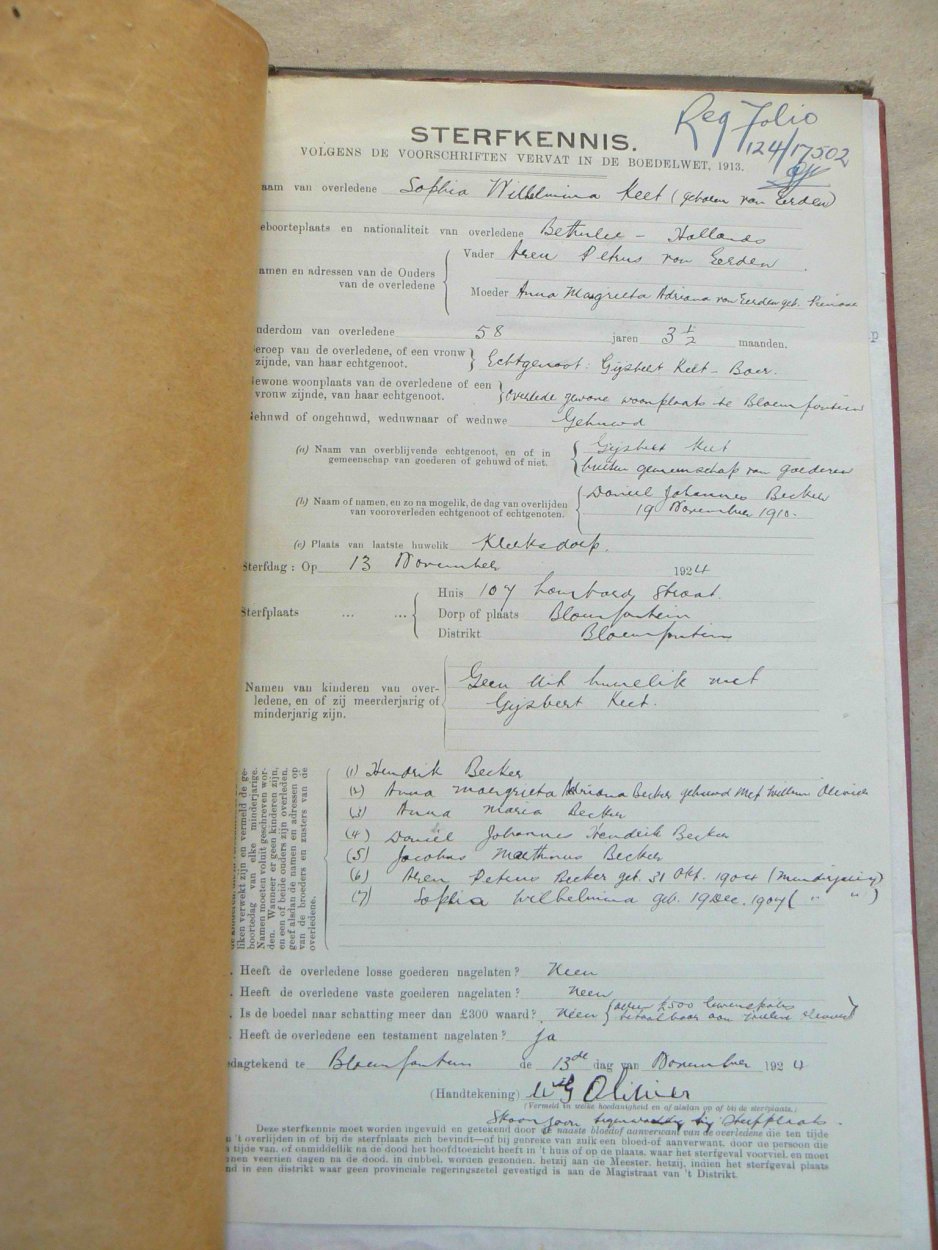 Reg Folio
124/17502
STERFKENNIS.
VOLGENS DE VOORSCHRIFTEN VERVAT IN DE BOEDELWET, 1913.
aam van overledene Sophia Wilhelmina Keet (geboren van Eerden)
eboorteplaats en nationaliteit van overledene Bethulie - Hollands
amen en adressen van de Ouders van de overledene
Vader Aren Petrus van Eerden
Moeder Anna Magrieta Adriana van Eerden geb.
uderdom van overledene 58 jaren 3 1/2 maanden.
eroep van de overledene, of een vrouw zijnde, van haar echtgenoot. Echtgenoot: Gijsbert Keet - Boer.
ewone woonplaats van de overledene of een vrouw zijnde, van haar echtgenoot. overlede gewone woonplaats te Bloemfontein
ehuwd of ongehuwd, weduwnaar of weduwe Gehuwd
(a) Naam van overblijvende echtgenoot, en of in gemeenschap van goederen of gehuwd of niet.
Gijsbert Keet
buiten gemeenschap van goederen
(b) Naam of namen, en zo na mogelik, de dag van overlijden van vooroverleden echtgenoot of echtgenoten.
Daniel Johannes Becker
19 November 1910.
(c) Plaats van laatste huwelik Klerksdorp.
Sterfdag: Op 13 November 1924
Sterfplaats ... ...
Huis 107 Lombard Straat.
Dorp of plaats Bloemfontein
Distrikt Bloemfontein
Namen van kinderen van overledene, en of zij meerderjarig of minderjarig zijn.
Geen uit huwelik met
Gijsbert Keet.
liken verwekt zijn en vermeld de ge-
boortedag van elke minderjarige.
Namen moeten voluit geschreven wor-
den. Wanneer er geen kinderen zijn,
en een of beide ouders zijn overleden,
geef alsdan de namen en adressen op
van de broeders en zusters van de
overledene.
(1) Hendrik Becker
(2) Anna Margrieta Adriana Becker gehuwd met Willem Olivier
(3) Anna Maria Becker
(4) Daniel Johannes Hendrik Becker
(5) Jacobus Marthinus Becker
(6) Aren Petrus Becker geb. 31 Okt. 1904 (minderjarig)
(7) Sophia Wilhelmina geb. 19 Dec. 1907 ( " " )
. Heeft de overledene losse goederen nagelaten? Neen
. Heeft de overledene vaste goederen nagelaten? Neen
. Is de boedel naar schatting meer dan £300 waard? Neen £500 betaalbaar aan
. Heeft de overledene een testament nagelaten? Ja
edagtekend te Bloemfontein de 13de dag van November 1924
(Handtekening) WG Olivier
(Vermeld in welke hoedanigheid en of alsdan op of bij de sterfplaats.)
Skoonzoon tegenwoordig bij Sterfplaats.
Deze sterfkennis moet worden ingevuld en getekend door de naaste bloed of aanverwant van de overledene die ten tijde
n 't overlijden in of bij de sterfplaats zich bevindt—of bij gebreke van zulk een bloed-of aanverwant, door de persoon die
n tijde van, of onmiddellik na de dood het hoofdtoezicht heeft in 't huis of op de plaats, waar het sterfgeval voorviel, en moet
nnen veertien dagen na de dood, in dubbel, worden gezonden, hetzij aan de Meester, hetzij, indien het sterfgeval plaats
nd in een distrikt waar geen provinciale regeringszetel gevestigd is aan de Magistraat van 't Distrikt.